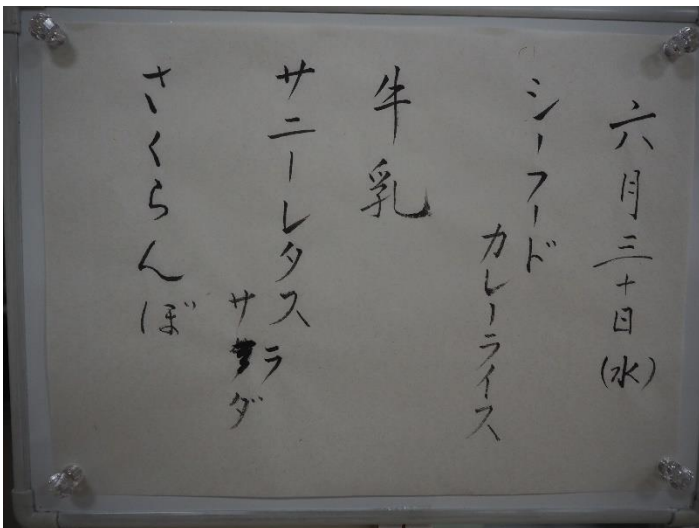 六月三十日(水)
シーフード
カレーライス
牛乳
サニーレタス
サラダ
さくらんぼ